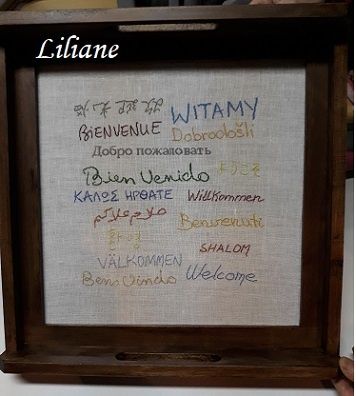 Liliane
WITAMY
BiENVENUE Dobrodošli
Добро пожаловать
Bien Venido ようこそ
ΚΑΛΩΣ ΗΡΘΑΤΕ Willkommen
Benvenuti
SHALOM
VÄLKOMMEN
Bem Vindo Welcome